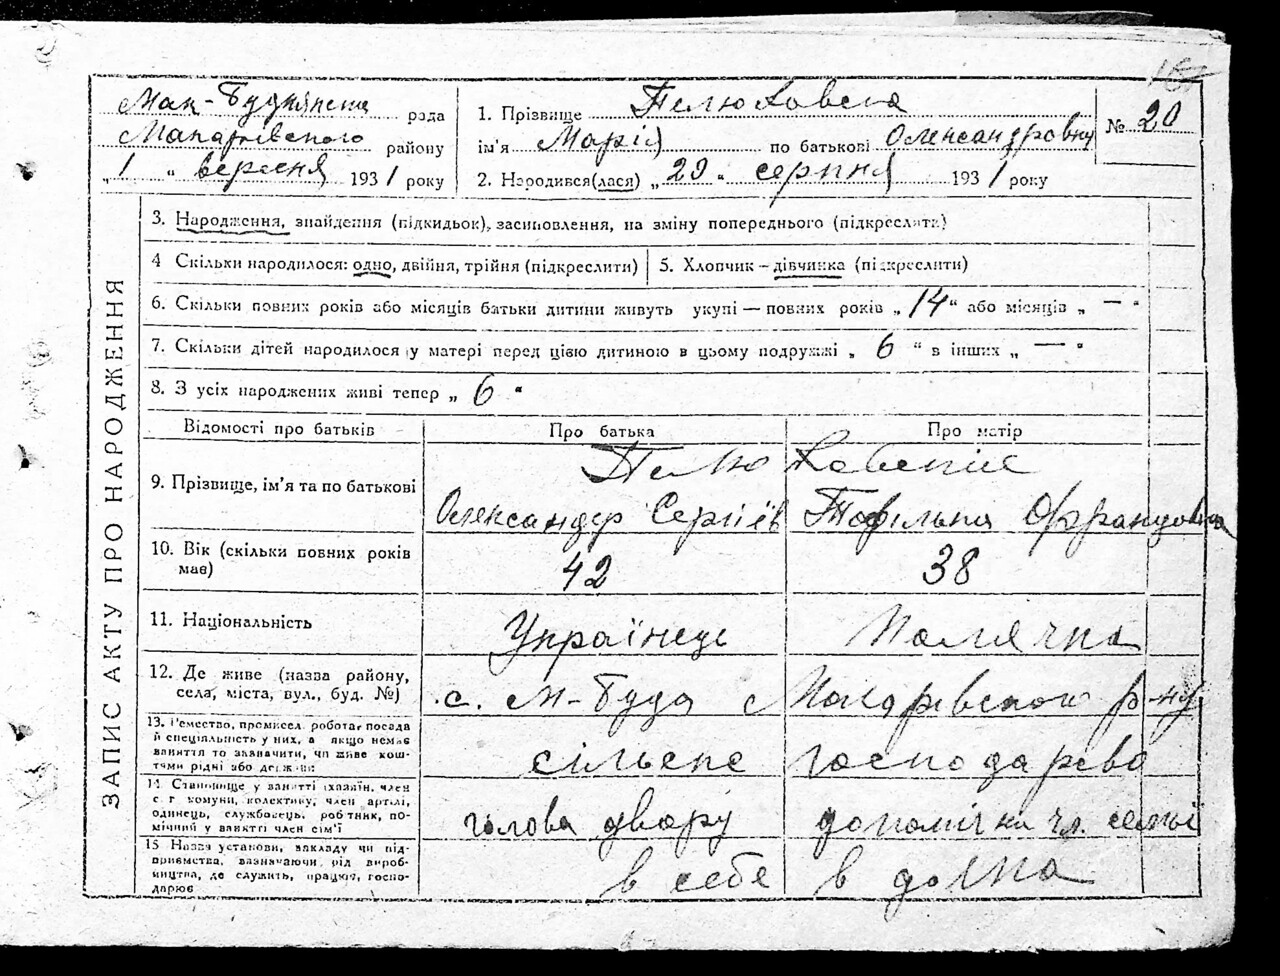 Мак-Будянська рада
Макарівського району
„1“ вересня 1931 року
1. Прізвище Пелюховска
ім'я Марія по батькові Олександровна
2. Народився(лася) „29“ серпня 1931 року
№ 20
ЗАПИС АКТУ ПРО НАРОДЖЕННЯ
3. Народження, знайдення (підкидьок), засиновлення, на зміну попереднього (підкреслити)
4 Скільки народилося: одно, двійня, трійня (підкреслити)
5. Хлопчик – дівчинка (підкреслити)
6. Скільки повних років або місяців батьки дитини живуть укупі — повних років „14“ або місяців „—“
7. Скільки дітей народилося у матері перед цією дитиною в цьому подружжі „6“ в інших „—“
8. З усіх народжених живі тепер „6“
Відомості про батьків
Про батька
Про матір
9. Прізвище, ім'я та по батькові
Олександер Сергіїв
Тофільна Францовна
10. Вік (скільки повних років
має)
42
38
11. Національність
Українець
Полячка
12. Де живе (назва району,
села, міста, вул., буд. №)
с. М-Буда Макарівського р-ну
13. Ремество, промисел, робота, посада
й спеціяльність у них, а якщо немає
заняття то зазначити, чи живе кош-
тами рідні або держави
сільске господарство
14 Становище у занятті (хазяїн, член
с.-г комуни, колективу, член артілі,
одинець, службовець, робітник, по-
мічний у занятті член сім'ї
голова двору
допомічна чл. семьї
15 Назва установи, закладу чи під-
приємства, зазначаючи рід вироб-
ництва, де служить, працює, госпо-
дарює
в себе